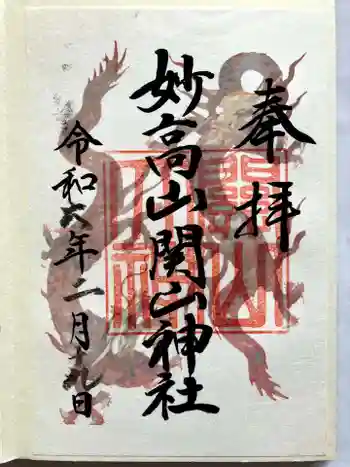 奉拝
妙高山関山神社
令和六年二月十九日